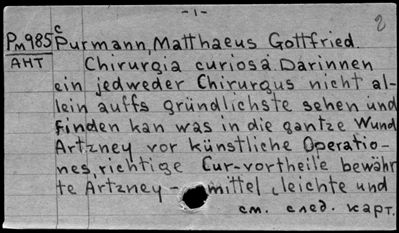 -1-
2
c
Pм985 Purmann, Matthaeus Gottfried.
АНТ Chirurgia curiosa. Darinnen
ein jedweder Chirurgus nicht al-
lein auffs gründlichste sehen und
finden kan was in die gantze Wund
Artzney vor künstliche Operatio-
nes, richtige Cur-vortheile bewähr
te Artzney-mittel, leichte und
см. след. карт.